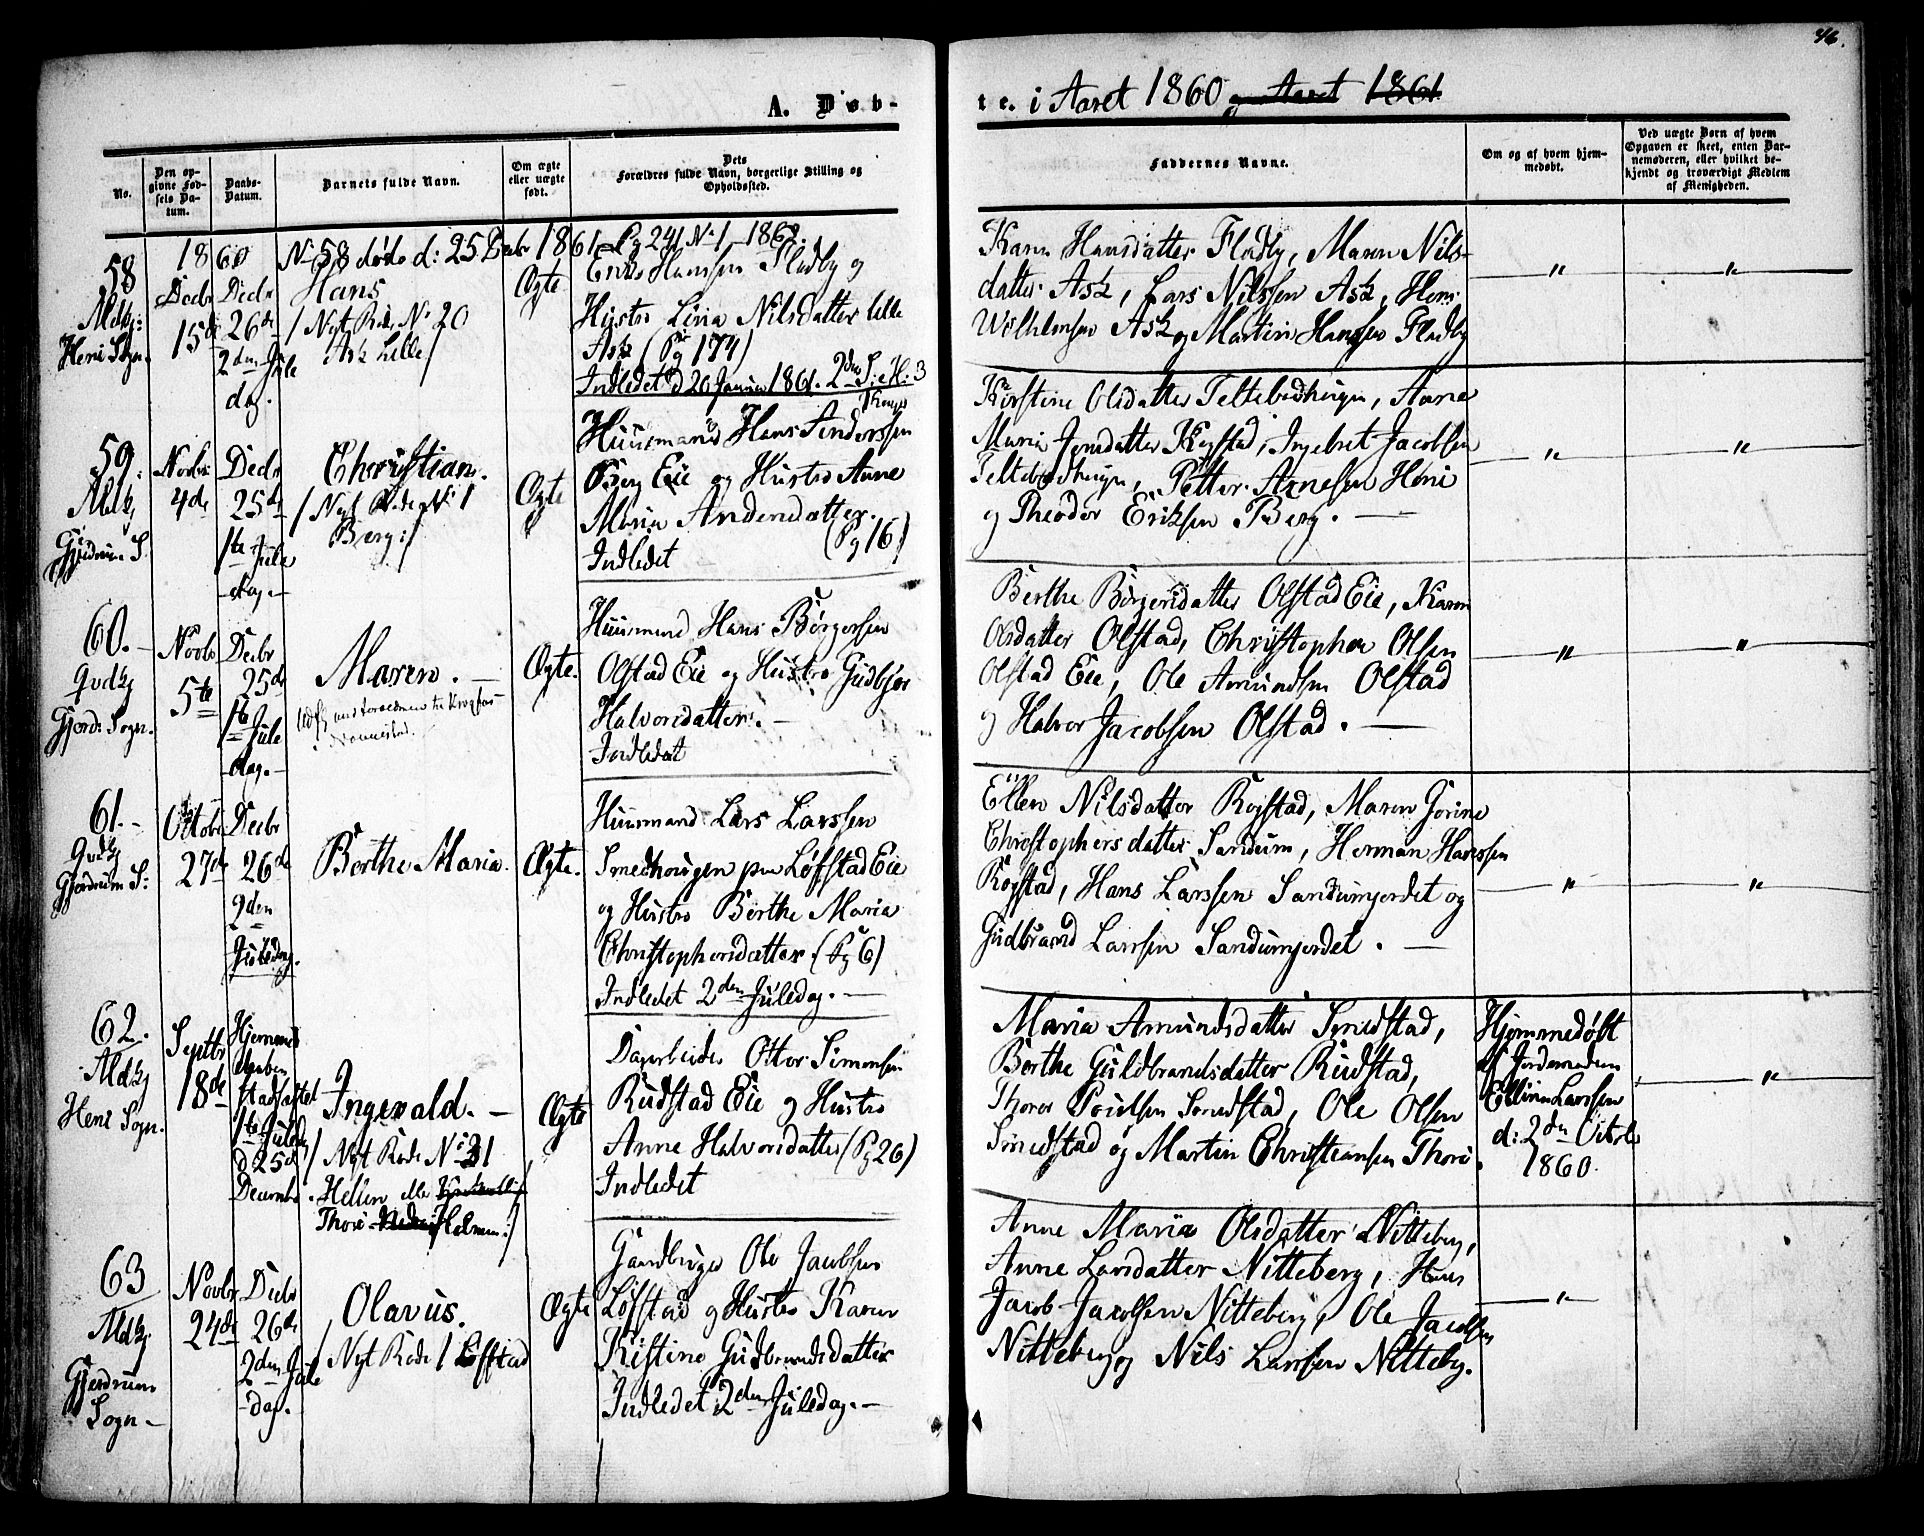 46.
A. Døb-
te. i Aaret 1860 og Aaret 1861
No.
Den op-
givne Fød-
sels Da-
tum.
Daabs-
Datum.
Barnets fulde Navn.
Om ægte
eller uægte
født.
Dets
Forældres fulde Navn, borgerlige Stilling og
Opholdssted.
Faddernes Navne.
Om og af hvem hjem-
medøbt.
Ved uægte Børn af hvem
Opgaven er skeet, enten Bar-
nemoderen, eller hvilket be-
kjendt og troværdigt Medlem
af Menigheden.
58
Mdkj:
Heni Sogn.
1860
Decbr
15de
Decbr
26de
2den Jule
dag.
No 58 døde d: 25 Decbr 1861 - Pg 241 No 1, 1862.
Hans
/ Nyt Rode, No 20
Ask Lille /
Ægte
Hansen Fladby og
Hustro Lina Nilsdatter lille
Ask (Pg 174)
Indledet d 20 Januar 1861. 2den S: e H: 3
Konger
Karn Hansdatter Fladby, Maren Nils-
datter Ask, Lars Nilssen Ask, Heni
Wilhelmsen Ask og Martin Hansen Fladby
"
"
59.
Mdkj
Gjerdrum S.
Novbr
4de
Decbr
25de
1ste Jule
dag.
Christian.
/ Nyt Rode No 1
Berg /
Ægte
Huusmand Hans Anderssen
Berg Eie og Hustro Anne
Maria Andersdatter.
(Pg 16)
Indledet
Kirstine Olsdatter Teltebedhugen, Anne
Maria Jonsdatter Kogstad, Ingebret Jacobsen
Teltebedhugen, Petter Arnesen Heni
og Theodor Eriksen Berg.
"
"
60.
Qvdkj
Gjerd: Sogn.
Novbr
5te
Decbr
25de
1ste Jule
dag.
Maren.
Ægte.
Huusmand Hans Børgersen
Olstad Eie og Hustro Gudbjør
Halvorsdatter.
Indledet
Berthe Børgersdatter Olstad Eie, Karen
Olsdatter Olstad, Christopher Olsen
Olstad Eie, Ole Amundsen Olstad
og Halvor Jacobsen Olstad.
"
"
61.
Qvdkj
Gjerdrum S:
Octobr
27de
Decbr
26de
2den
Juledag.
Berthe Maria.
Ægte.
Huusmand Lars Larssen
Smedhougen paa Løfstad Eie
og Hustro Berthe Maria
Christophersdatter (Pg 6)
Indledet 2den Juledag.
Ellen Nilsdatter Rogstad, Maren Jorine
Christophersdatter Sandum, Herman Hanssen
Rogstad, Hans Larssen Sandumjordet og
Gudbrand Larssen Sandumjordet.
"
"
62.
Mdkj
Heni Sogn.
Septbr
18de
Hjemme
daaben
stadfæstet
1ste Juledag
d 25de
Decembr.
Ingevald.
/ Nyt Rode No 21
Hellen eller
Thori Holmen /
Ægte
Dagarbeider Otter Simonsen
Rudstad Eie og Hustro
Anne Halvorsdatter (Pg 26)
Indledet
Maria Amundsdatter Smedstad,
Berthe Guldbrandsdatter Rudstad,
Thorer Poulsen Smedstad, Ole Olsen
Smedstad og Martin Christiansen Thori.
Hjemmedøbt
af Jordemoderen
Larssen
d: 2den Octobr
1860.
"
63
Mdkj
Gjerdrum
Sogn
Novbr
24de
Decbr
26de
2den Jule
dag.
Olavus.
/ Nyt Rode 1 Løfstad
Ægte
Gaardbruger Ole Jacobsen
Løfstad og Hustro Karen
Kistine Gudbrandsdatter
Indledet 2den Juledag.
Anne Maria Olsdatter Nitteberg,
Anne Larsdatter Nitteberg, Hans
Jacob Jacobsen Nitteberg, Ole Jacobsen
Nitteberg og Nils Larssen Nitteby.
"